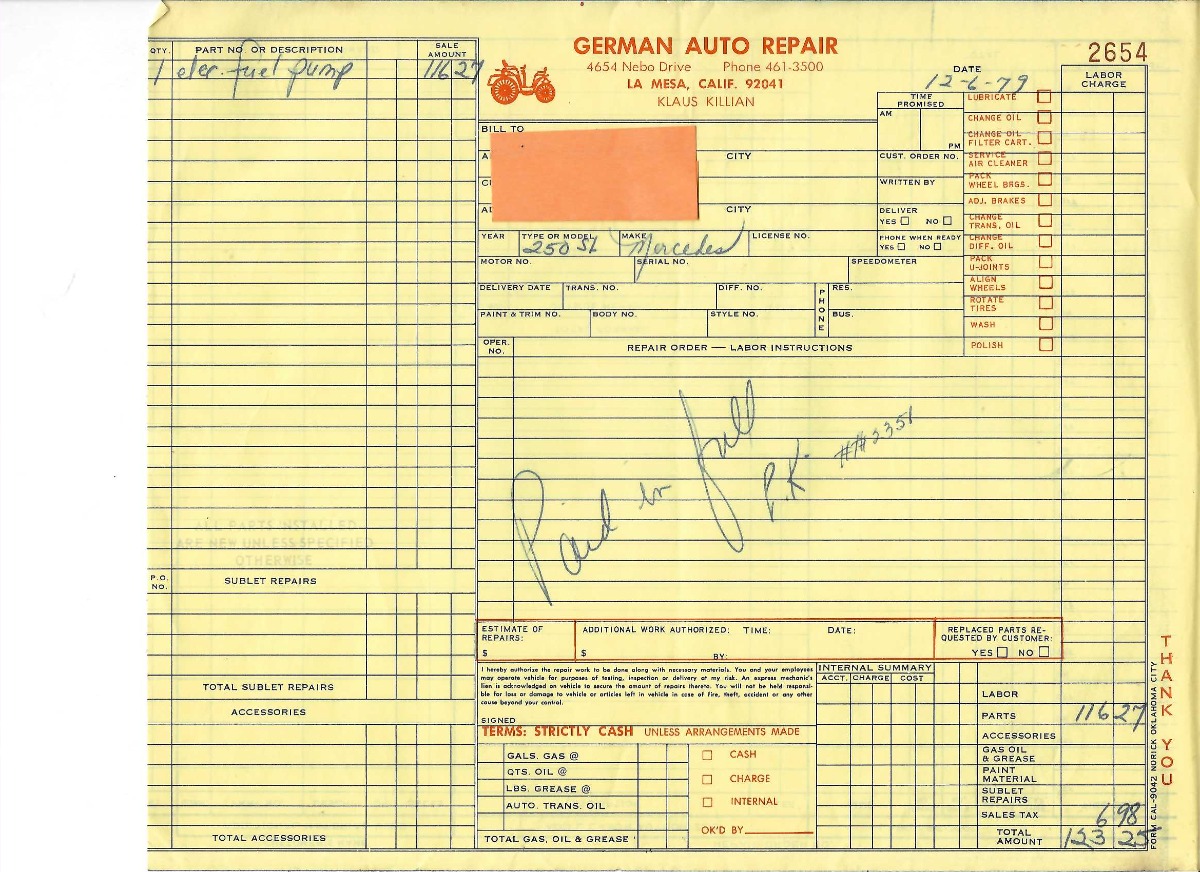 QTY. PART NO. OR DESCRIPTION SALE AMOUNT
1 elec. fuel pump 116 27
ALL PARTS INSTALLED
ARE NEW UNLESS SPECIFIED
OTHERWISE
P.O. NO. SUBLET REPAIRS
TOTAL SUBLET REPAIRS
ACCESSORIES
TOTAL ACCESSORIES
GERMAN AUTO REPAIR
4654 Nebo Drive Phone 461-3500
LA MESA, CALIF. 92041
KLAUS KILLIAN
2654
DATE 12-6-79
LABOR CHARGE
BILL TO
CITY
CITY
TIME PROMISED
AM
PM
CUST. ORDER NO.
WRITTEN BY
DELIVER
YES NO
PHONE WHEN READY
YES NO
LUBRICATE
CHANGE OIL
CHANGE OIL
FILTER CART.
SERVICE
AIR CLEANER
PACK
WHEEL BRGS.
ADJ. BRAKES
CHANGE
TRANS. OIL
CHANGE
DIFF. OIL
PACK
U-JOINTS
ALIGN
WHEELS
ROTATE
TIRES
WASH
POLISH
YEAR TYPE OR MODEL 250 SL MAKE Mercedes LICENSE NO.
MOTOR NO. SERIAL NO. SPEEDOMETER
DELIVERY DATE TRANS. NO. DIFF. NO. PHONE RES.
PAINT & TRIM NO. BODY NO. STYLE NO. BUS.
OPER. NO. REPAIR ORDER — LABOR INSTRUCTIONS
Paid in full
P.K.
ESTIMATE OF REPAIRS: $
ADDITIONAL WORK AUTHORIZED: TIME: DATE:
$ BY:
REPLACED PARTS RE-
QUESTED BY CUSTOMER:
YES NO
I hereby authorize the repair work to be done along with necessary materials. You and your employees
may operate vehicle for purposes of testing, inspection or delivery at my risk. An express mechanic's
lien is acknowledged on vehicle to secure the amount of repairs thereto. You will not be held responsi-
ble for loss or damage to vehicle or articles left in vehicle in case of fire, theft, accident or any other
cause beyond your control.
SIGNED
TERMS: STRICTLY CASH UNLESS ARRANGEMENTS MADE
GALS. GAS @
QTS. OIL @
LBS. GREASE @
AUTO. TRANS. OIL
TOTAL GAS, OIL & GREASE
CASH
CHARGE
INTERNAL
OK'D BY
INTERNAL SUMMARY
ACCT. CHARGE COST
LABOR
PARTS 116 27
ACCESSORIES
GAS OIL
& GREASE
PAINT
MATERIAL
SUBLET
REPAIRS
SALES TAX 6 98
TOTAL AMOUNT 123 25
FORM CAL-9042 NORICK OKLAHOMA CITY
THANK YOU